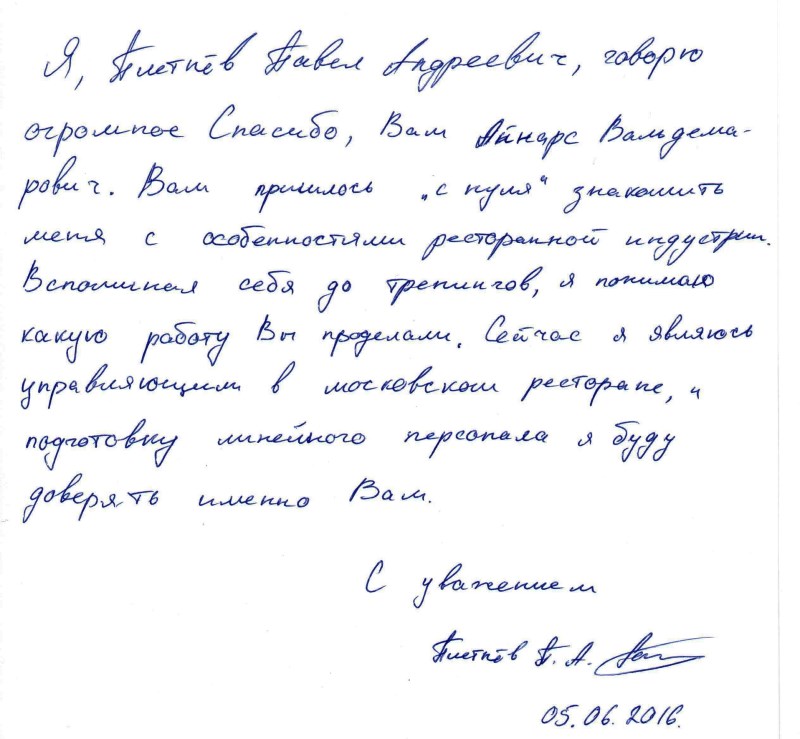 Я, Плетнёв Павел Андреевич, говорю
огромное Спасибо, Вам Айнарс Вальдема-
рович. Вам пришлось „с нуля“ знакомить
меня с особенностями ресторанной индустрии.
Вспоминая себя до тренингов, я понимаю
какую работу Вы проделали. Сейчас я являюсь
управляющим в московском ресторане, и
подготовку линейного персонала я буду
доверять именно Вам.
С уважением
Плетнёв П. А.
05.06.2016.